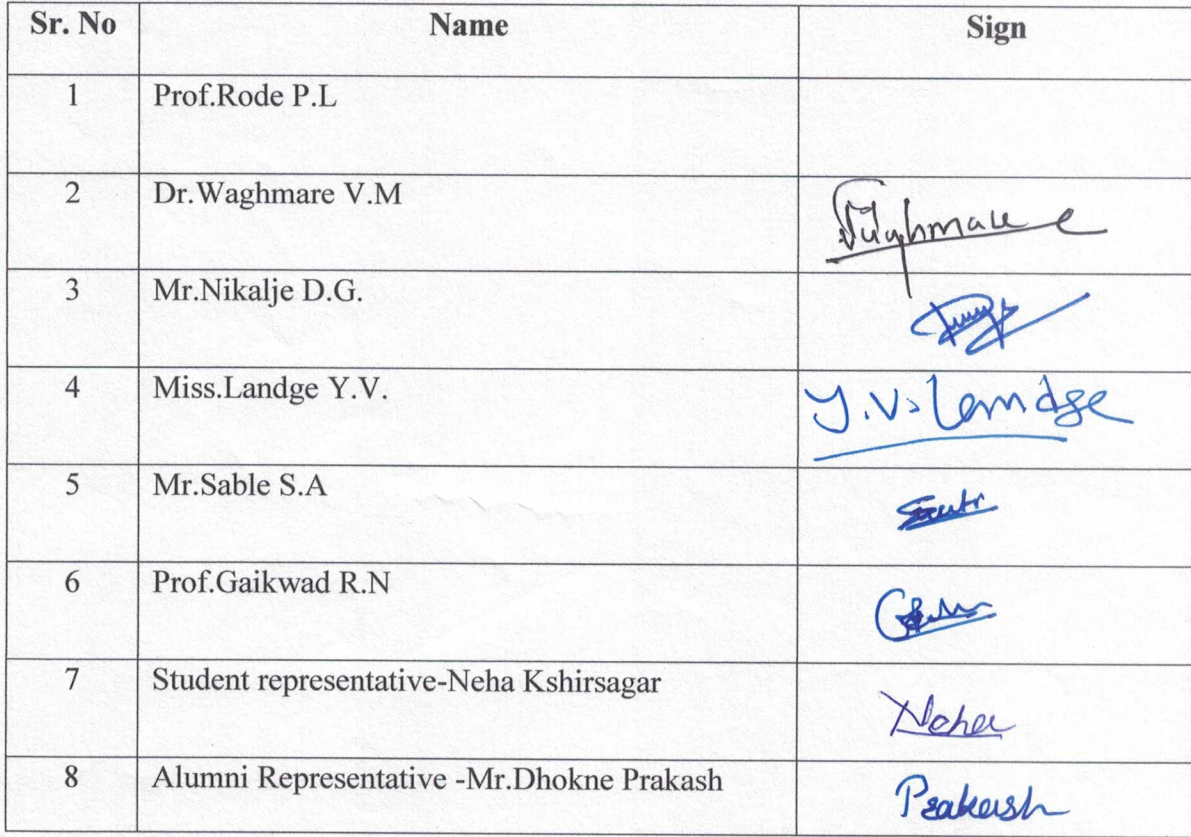 Sr. No Name Sign
1 Prof.Rode P.L
2 Dr.Waghmare V.M Waghmare
3 Mr.Nikalje D.G.
4 Miss.Landge Y.V. Y.V. Landge
5 Mr.Sable S.A
6 Prof.Gaikwad R.N
7 Student representative-Neha Kshirsagar Neha
8 Alumni Representative -Mr.Dhokne Prakash Prakash